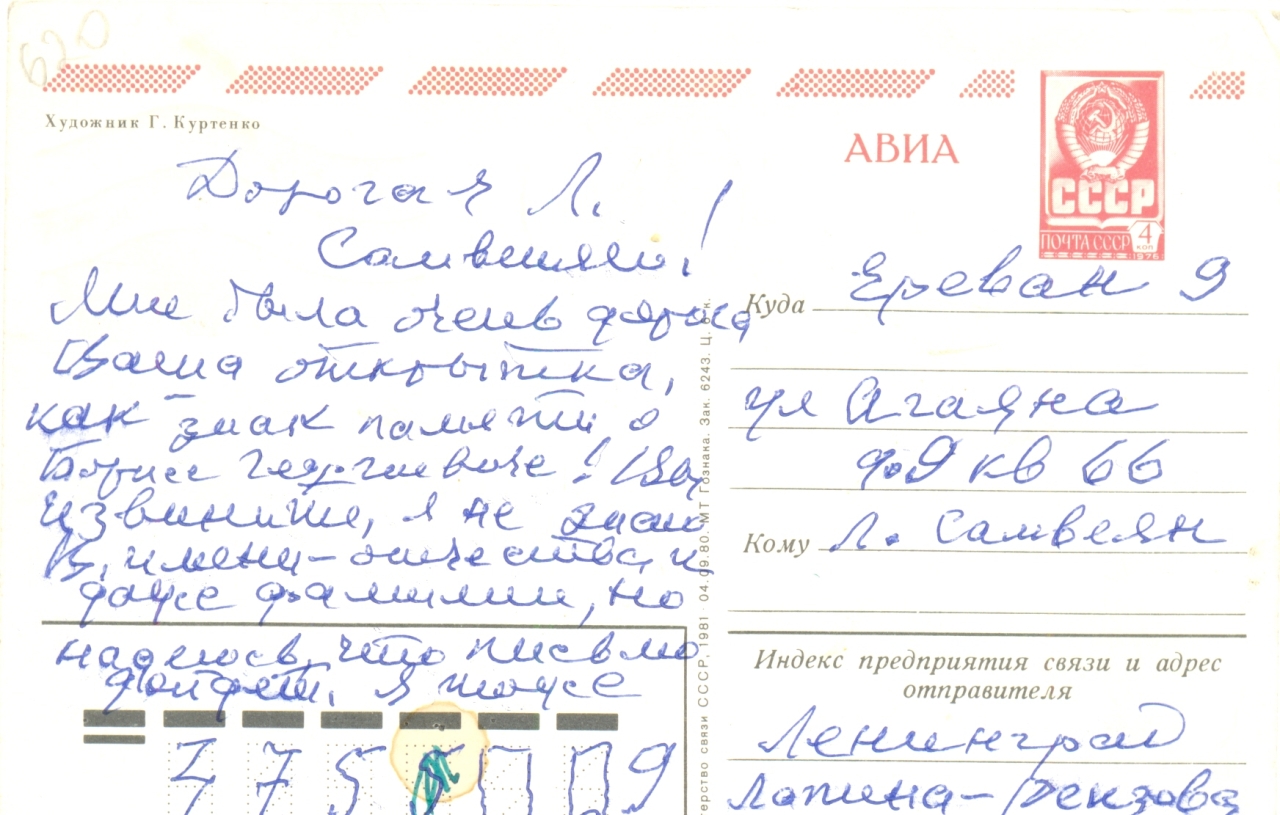 620
Художник Г. Куртенко
АВИА
СССР
ПОЧТА СССР 4 коп
1976
Дорогая Л.
Самвелян!
Мне была очень дорога
Ваша открытка,
как знак памяти о
Борисе Георгиевиче! Вы
извините, я не знаю
В. имени-отчества и
даже фамилии, но
надеюсь, что письмо
дойдет. Я тоже
Куда Ереван 9
ул Агаяна
д.9 кв 66
Кому Л. Самвелян
Индекс предприятия связи и адрес
отправителя
Ленинград
Лапина-
терство связи СССР, 1981 04.09.80. МТ Гознака. Зак. 6243. Ц.